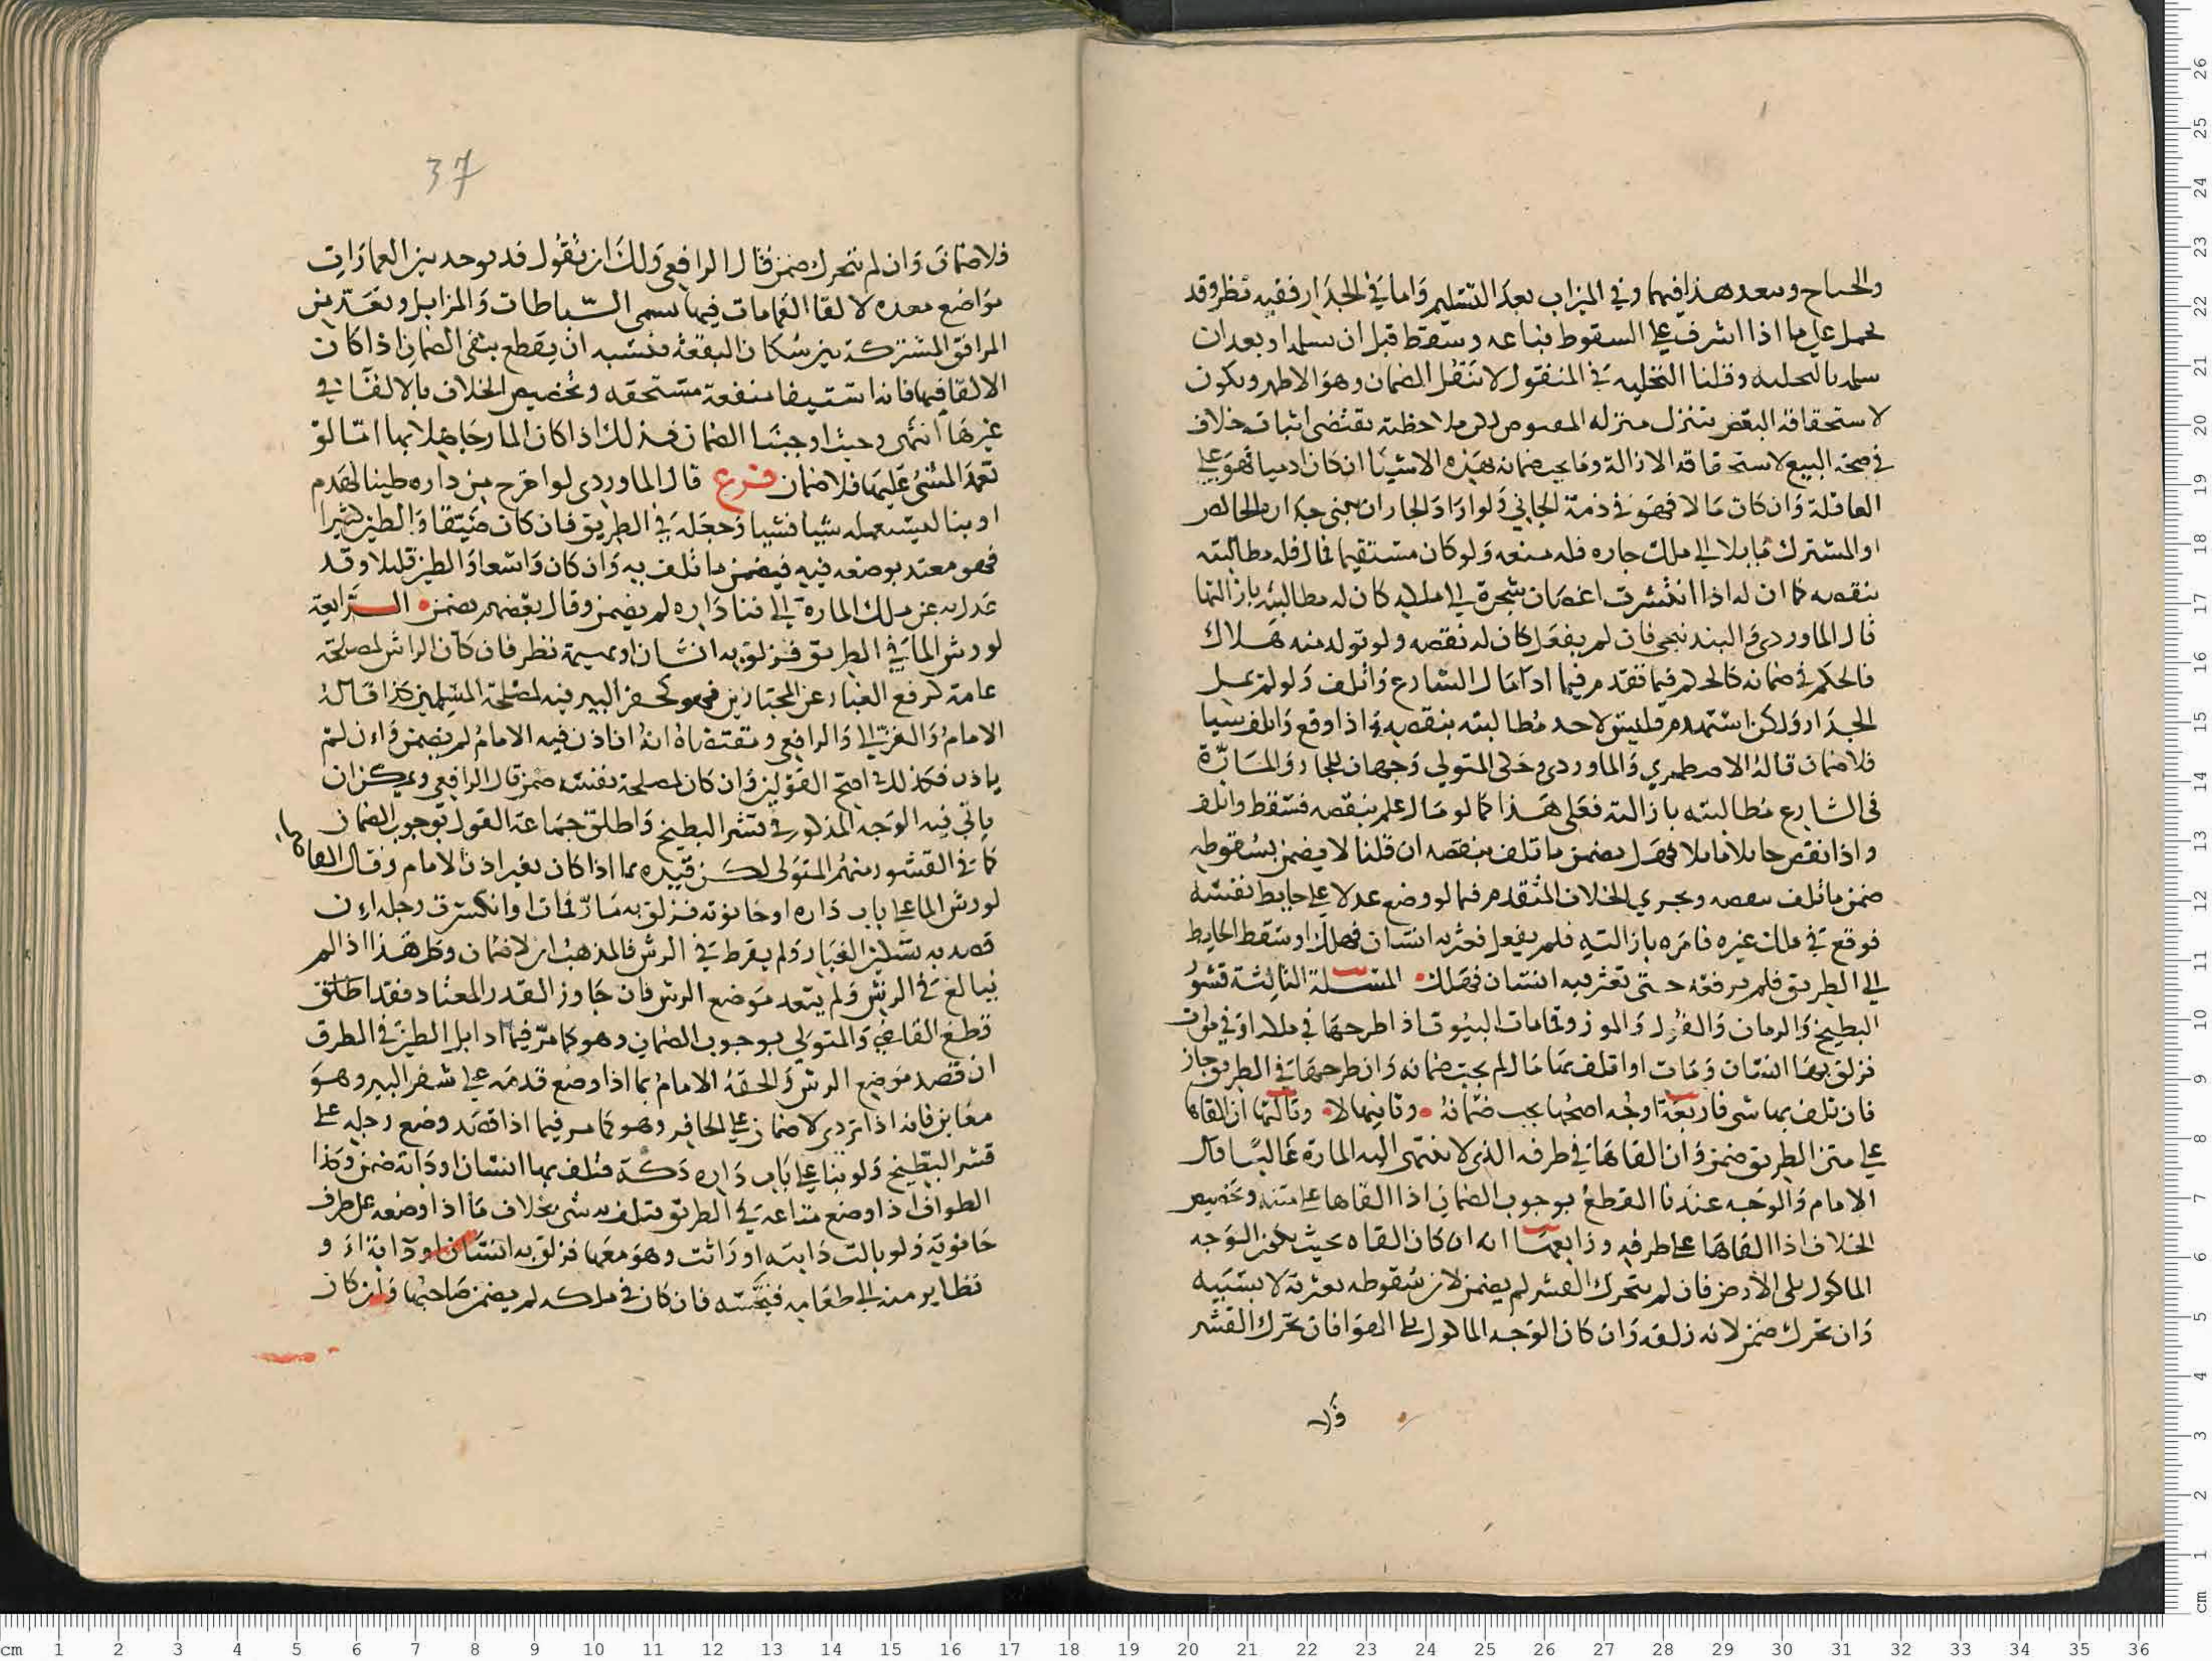 والجناح وسعد هذا فيهما وفي الميزاب بعد التسليم واما في الجدار ففيه نظر وقد
يحمل على ما اذا اشرف على السقوط فباعه وسقط قبل ان يسلمه او بعد ان
سلمه بالتخلية وقلنا التخلية في المنقول لا تنقل الضمان وهو الاظهر ويكون
لاستحقاقه النقض يتنزل منزلة المقبوض لكن ملاحظته تقتضي اثبات خلاف
في صحة البيع لاستحقاقه الازالة وما يجب ضمانه بهذه الاشيا ان كان ادميا فهو على
العاقلة وان كان مالا فهو في ذمة الجاني ولو اراد الجار ان يبني جداره الخالص
او المشترك مايلا الى ملك جاره فله منعه ولو كان مستقيما فمال فله مطالبته
بنقضه كما ان له اذا انتشرت اغصان شجرة الى ملكه كان له مطالبته بازالتها
قال الماوردي والبندنيجي فان لم يفعل كان له نقضه ولو تولد منه هلاك
فالحكم في ضمانه كالحكم فيما تقدم فيما اذا مال الشارع واتلف ولو لم يمل
الجدار ولكن استهدم فليس لاحد مطالبته بنقضه واذا وقع واتلف شيا
فلا ضمان قاله الاصطخري والماوردي وحكى المتولي وجهان للجار والمارة
في الشارع مطالبته بازالته فعلى هذا كما لو مال علم بنقضه فسقط واتلف
واذا نقض حايلا مايلا فهل يضمن ما تلف بنقضه ان قلنا لا يضمن بسقوطه
ضمن ما تلف بنقضه ويجري الخلاف المتقدم فيما لو وضع عدلا على حايط نفسه
فوقع في ملك غيره فامره بازالته فلم يفعل فعثر به انسان فهلك او سقط الحايط
الى الطريق فلم يرفعه حتى تعثر به انسان فهلك المسلة الثالثة قشور
البطيخ والرمان والفول والموز وقمامات البيوت اذا طرحها في ملكه او في موات
فزلق بها انسان ومات او تلف بها مال لم يجب ضمانه وان طرحها في الطريق جاز
فان تلف بها شي فاربعة اوجه اصحها يجب ضمانه وثانيها لا وثالثها ان القاها
على متن الطريق ضمن وان القاها في طرفه الذي لا تنتهي اليه المارة غالبا قال
الامام والوجه عندنا القطع بوجوب الضمان اذا القاها على متنه وتخصيص
الخلاف اذا القاها على طرفه ورابعها انه ان كان القاه بحيث يكون الوجه
الماكول يلي الارض فان لم يتحرك القشر لم يضمن لان سقوطه بعثرته لا بسببه
وان تحرك ضمن لانه زلقه وان كان الوجه الماكول يلي الهوا فان تحرك القشر
37
فلا ضمان وان لم يتحرك ضمن قال الرافعي ولك ان تقول قد يوجد بين العمارات
مواضع معده لالقا القمامات فيها تسمى السباطات والمزابل وتعد من
المرافق المشتركة بين سكان البقعة فيشبه ان يقطع بنفي الضمان اذا كان
الالقا فيها فانه استيفا منفعة مستحقه وتخصيص الخلاف بالالقا في
غيرها انتهى وحيث اوجبنا الضمان فذلك اذا كان المار جاهلا بها اما لو
تعمد المشي عليها فلا ضمان فرع قال الماوردي لو اخرج من داره طينا لهدم
او بنا ليستعمله شيا فشيا وجعله في الطريق فان كان ضيقا والطين كثيرا
فهو معتد بوضعه فيه فيضمن ما تلف به وان كان واسعا والطين قليلا وقد
عدل به عن مسلك المارة الى فنا داره لم يضمن وقال بعضهم يضمن الرابعة
لو رش الما في الطريق فزلق به انسان او بهيمة نظر فان كان الراش لمصلحة
عامة كدفع الغبار عن المجتازين فهو كحفر البير فيه لمصلحة المسلمين كذا قاله
الامام والغزالي والرافعي ومقتضاه انه ان اذن فيه الامام لم يضمن وان لم
ياذن فكذلك في اصح القولين وان كان لمصلحة نفسه ضمن قال الرافعي ويمكن ان
ياتي فيه الوجه المذكور في قشر البطيخ واطلق جماعة القول بوجوب الضمان
كما في القشور منهم المتولي لكن قيده بما اذا كان بغير اذن الامام وقال القاضي
لو رش الما على باب داره او حانوته فزلق به مار فمات او انكسرت رجله ان
قصد به تسكين الغبار ولم يفرط في الرش فالمذهب ان لا ضمان وكل هذا اذا لم
يبالغ في الرش ولم يتعد موضع الرش فان جاوز القدر المعتاد فقد اطلق
قطع القاضي والمتولي بوجوب الضمان وهو كما مر فيما اذا بل الطين في الطرق
ان قصد موضع الرش والحقه الامام بما اذا وضع قدمه على شفر البير وهو
معاين فانه اذا تردى لا ضمان على الحافر وهو كما مر فيما اذا قصد وضع رجله على
قشر البطيخ ولو بنا على باب داره دكة فتلف بها انسان او دابة ضمن وكذا
الطواف اذا وضع متاعه في الطريق فتلف به شي بخلاف ما اذا وضعه على طرف
حانوته ولو بالت دابته او راثت وهو معها فزلق به انسان او دابة او
تطاير منه الى طعام فنجسه فان كان في ملكه لم يضمن صاحبها وان كان